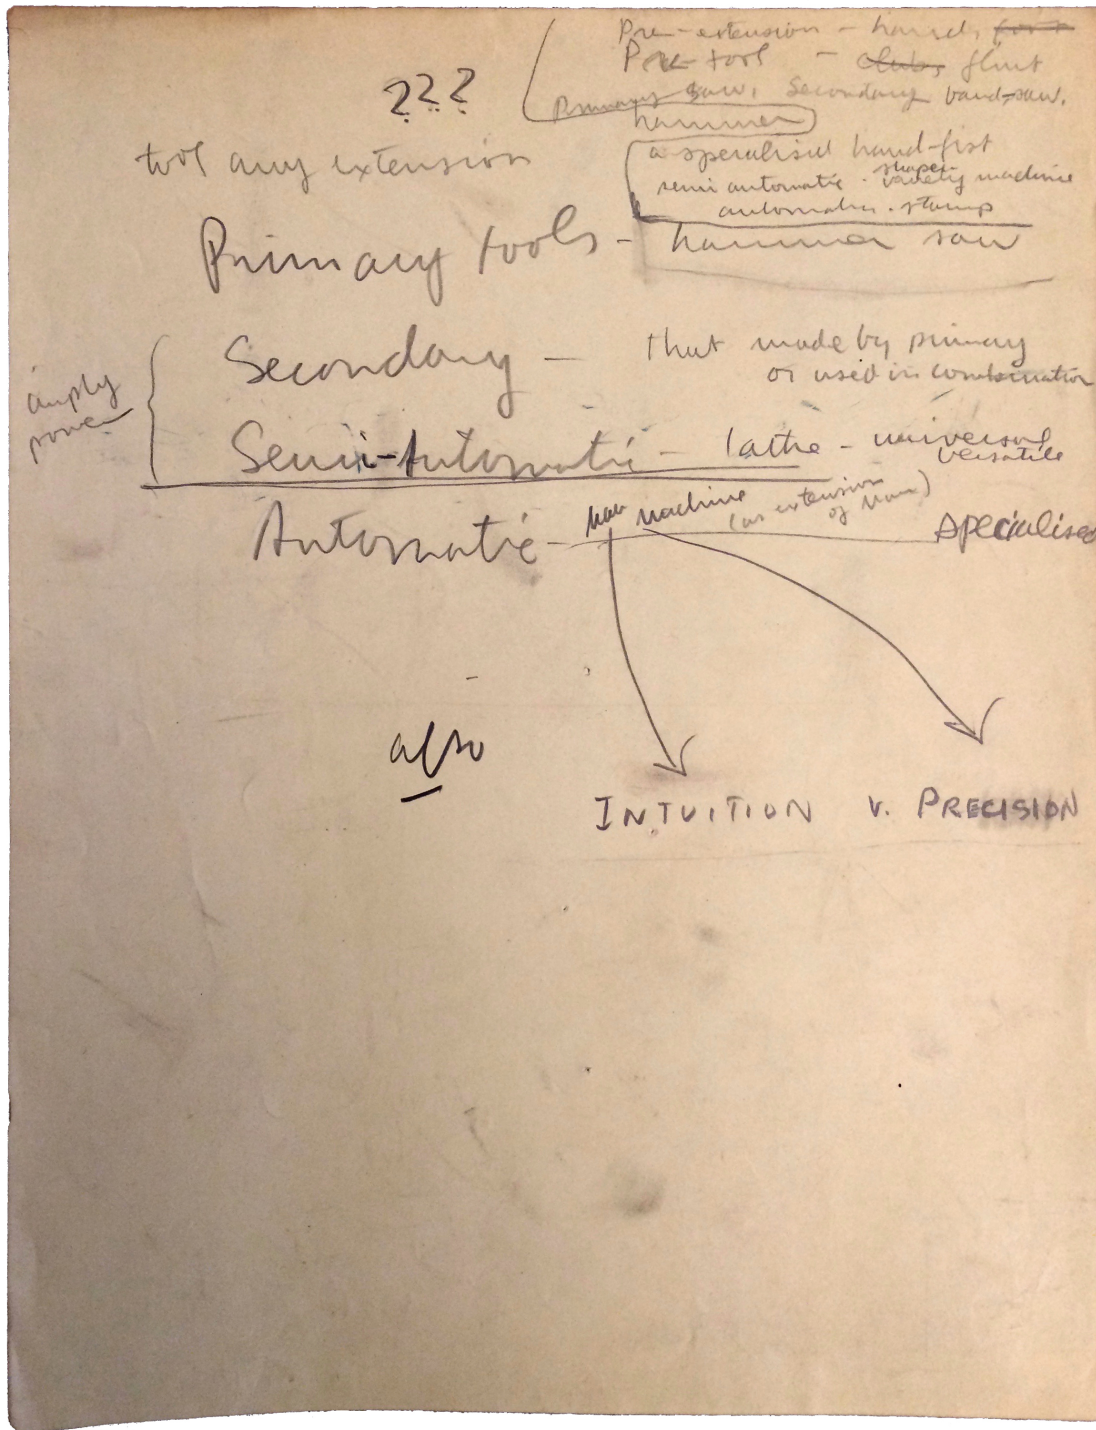 Pre-extension - hand, foot
Pre-tool - clubs flint
???
Primary saw, Secondary band-saw.
hammer
tool any extension
a specialised hand-fist
semi automatic - shaper
variety machine
automatic - stamp
Primary tools - hammer saw
Secondary - that made by primary
or used in combination
amply
power
Semi-Automatic - lathe - universal
versatile
Automatic - man machine (an extension
of man) specialised
also
INTUITION V. PRECISION